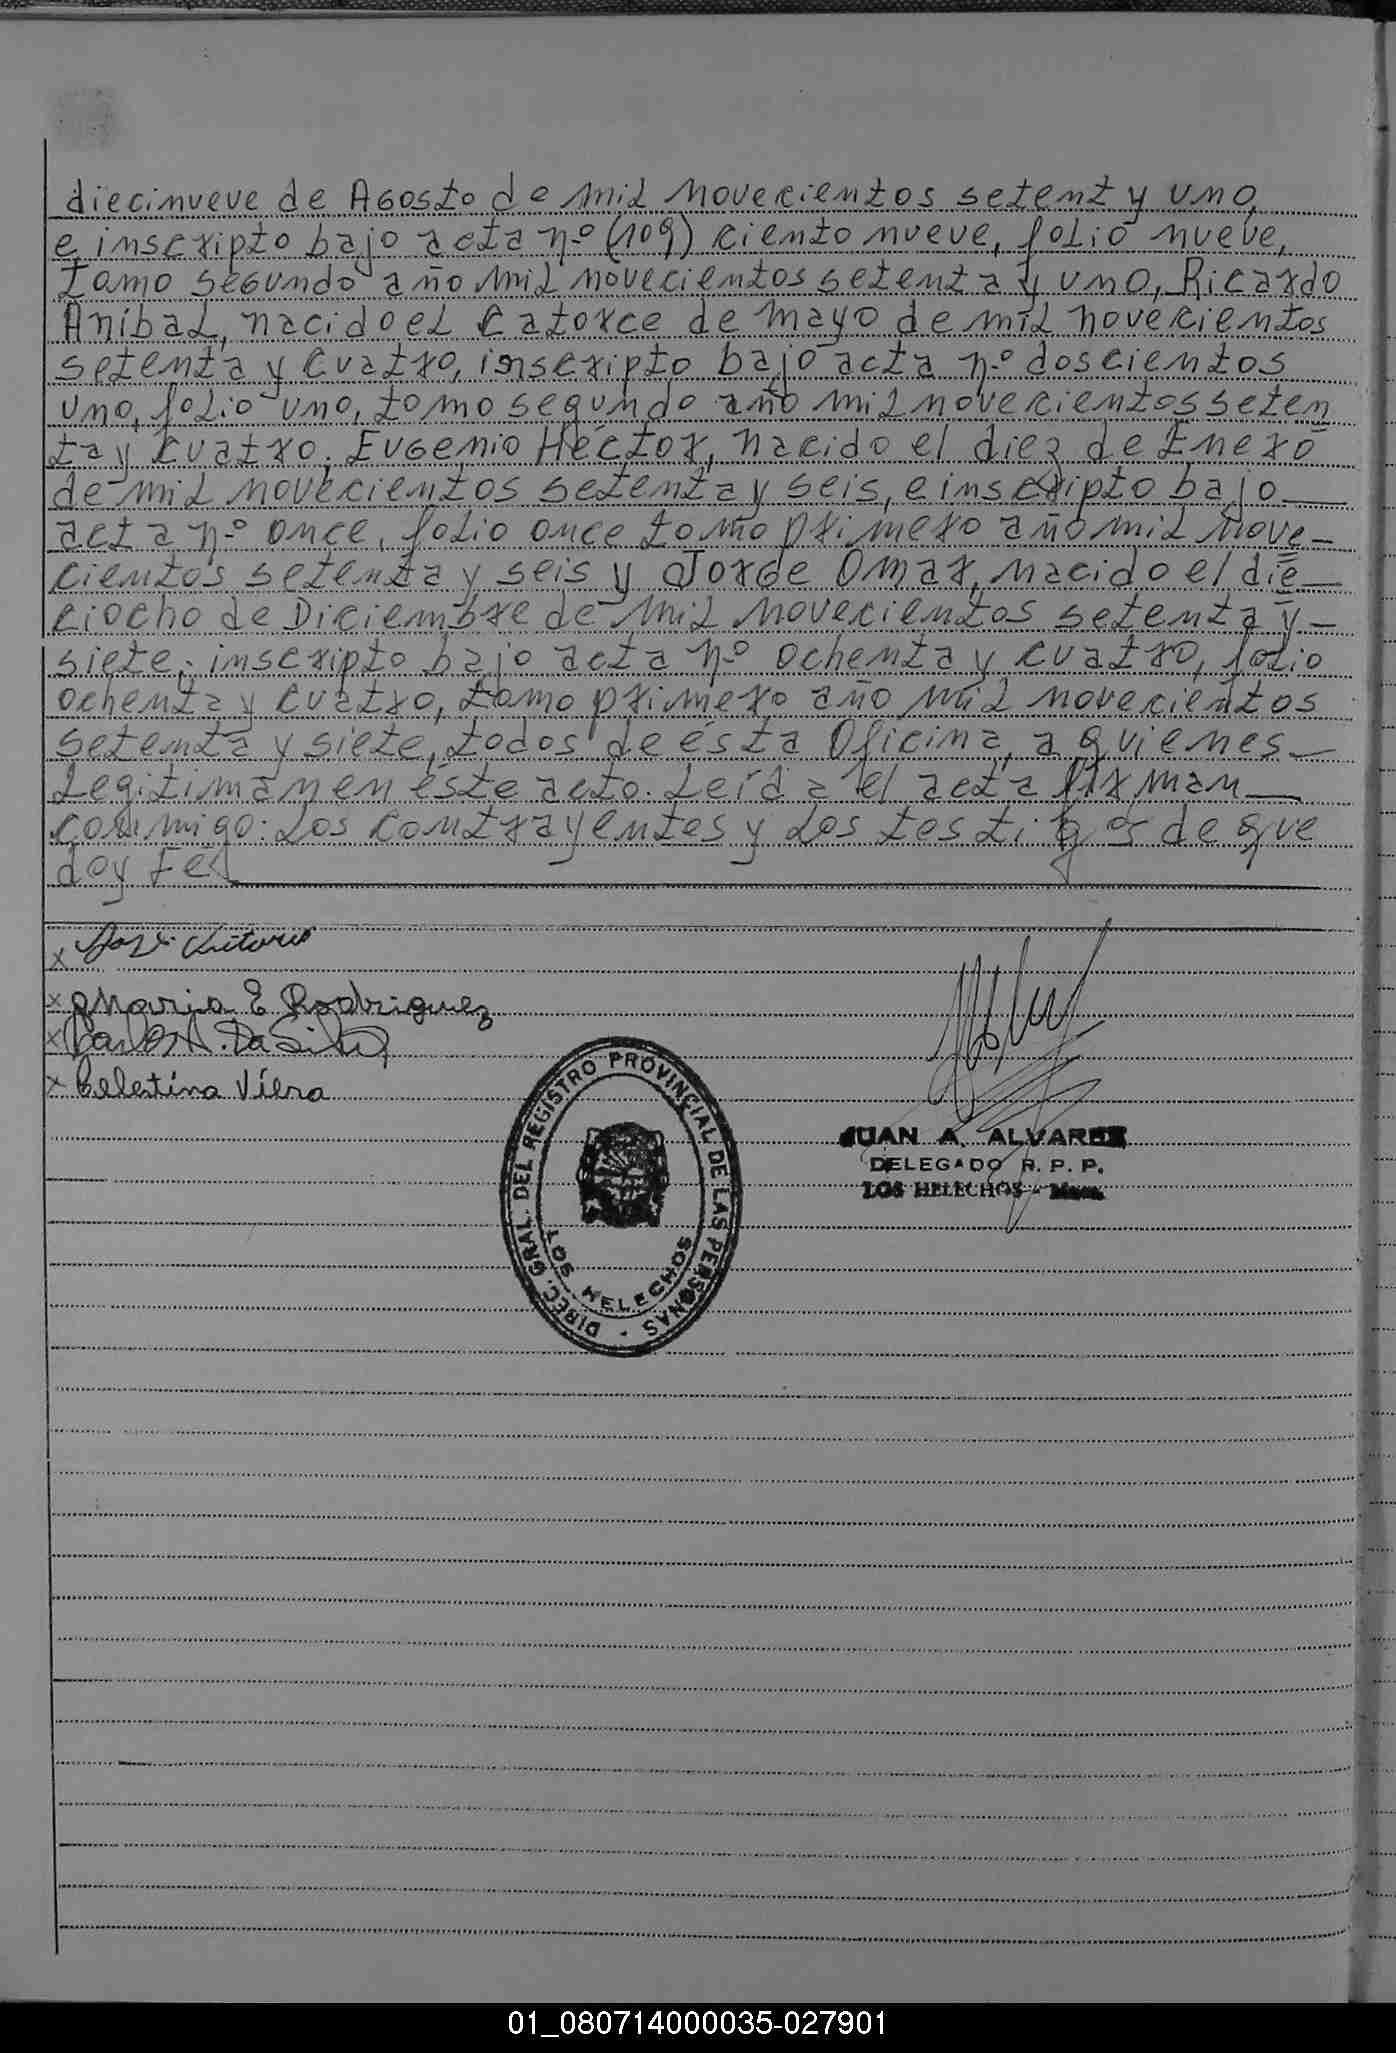 diecinueve de Agosto de mil novecientos setent y uno,
e inscripto bajo acta nº (109) ciento nueve, folio nueve,
tomo segundo año mil novecientos setenta y uno, Ricardo
Aníbal, nacido el catorce de mayo de mil novecientos
setenta y cuatro, inscripto bajo acta nº doscientos
uno, folio uno, tomo segundo año mil novecientos seten
ta y cuatro; Eugenio Héctor, nacido el diez de Enero
de mil novecientos setenta y seis, e inscripto bajo
acta nº once, folio once tomo primero año mil nove-
cientos setenta y seis y Jorge Omar, nacido el die-
ciocho de Diciembre de mil novecientos setenta y-
siete; inscripto bajo acta nº ochenta y cuatro, folio
ochenta y cuatro, tomo primero año mil novecientos
setenta y siete, todos de ésta Oficina, a quienes-
Legitiman en éste acto. Leída el acta firman
conmigo: Los contrayentes y Los testigos de que
doy Fe
x
x Maria E Rodriguez
x Carlos A. Da Silva
x Celestina Viera
JUAN A. ALVAREZ
DELEGADO R. P. P.
LOS HELECHOS - Mnes.
DIREC. GRAL. DEL REGISTRO PROVINCIAL DE LAS PERSONAS -
LOS HELECHOS
01_080714000035-027901